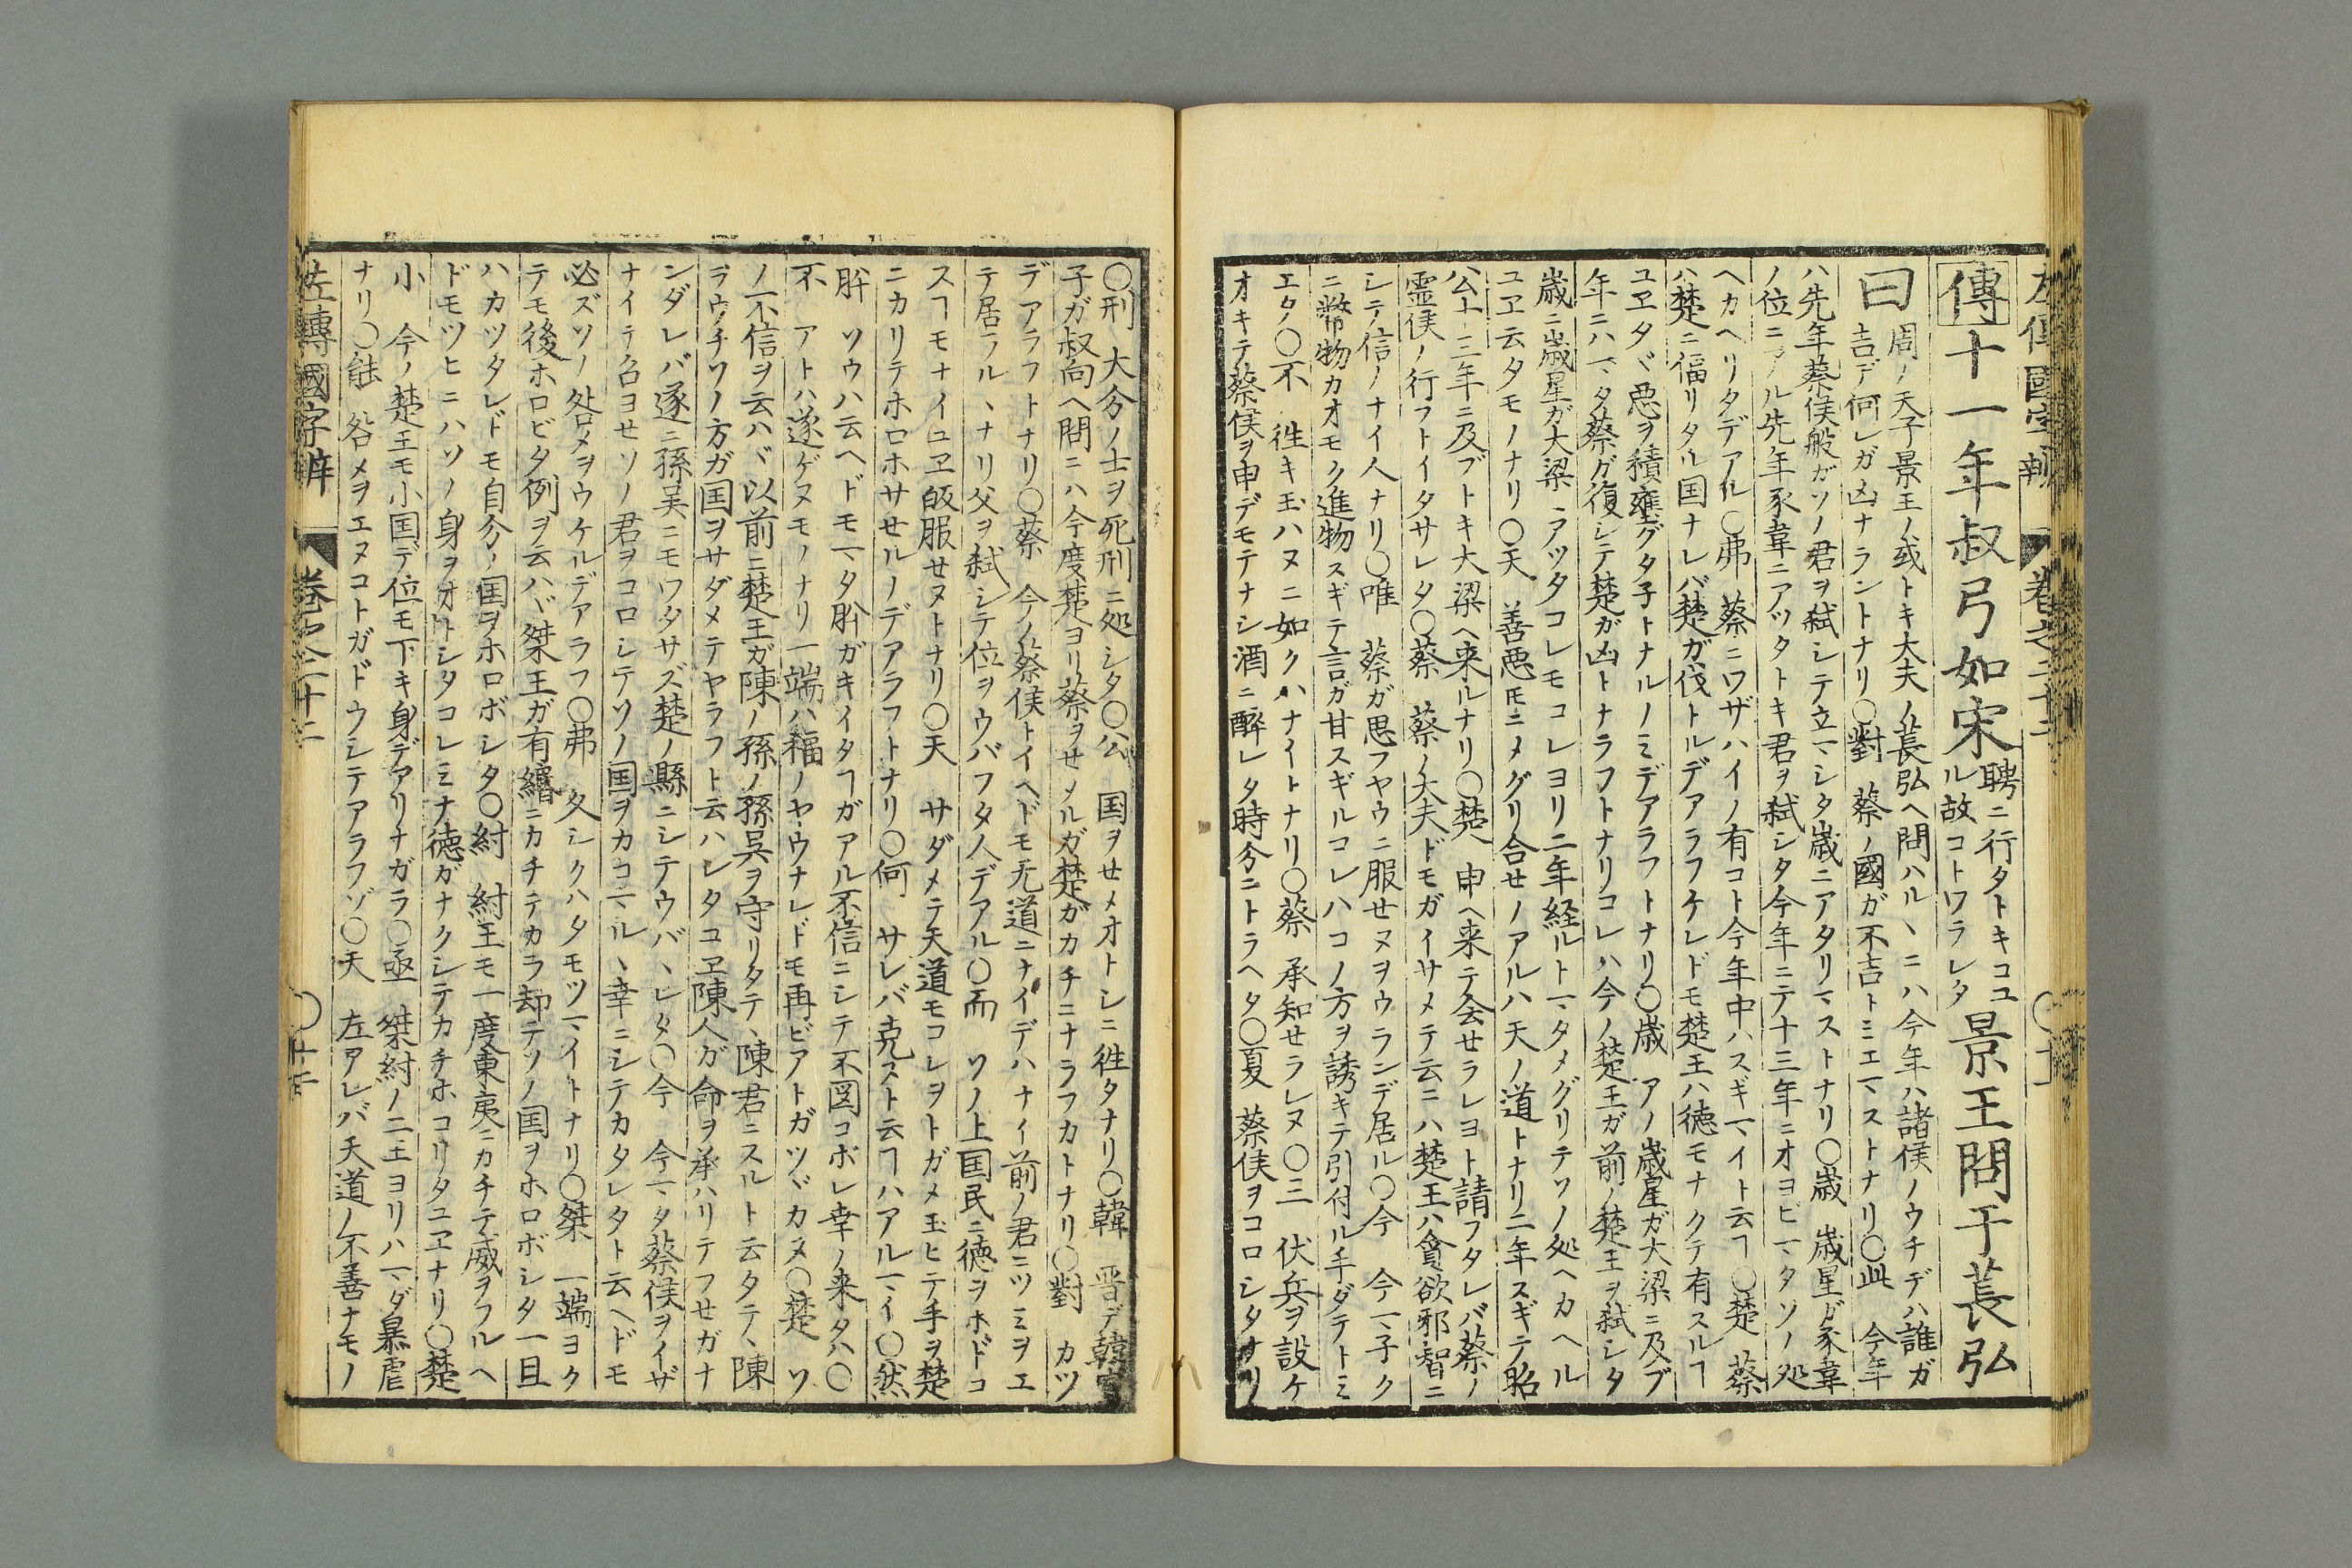 傳十一年叔弓如宋聘ニ行タトキコユル故コトワラレタ景王問于萇弘
曰周ノ天子景王ノ或トキ大夫ノ萇弘ヘ問ハルヽニハ今年ハ諸侯ノウチデハ誰ガ
吉デ何レガ凶ナラントナリ〇對 蔡ノ國ガ不吉トミエマストナリ〇此 今年
ハ先年蔡侯般ガソノ君ヲ弑シテ立マシタ歳ニアタリマストナリ〇歳 歳星ガ豕韋
ノ位ニアル先年豕韋ニアツタトキ君ヲ弑シタ今年ニテ十三年ニオヨビマタソノ処
ヘカヘリタデアル〇弗 蔡ニワザハイノ有コト今年中ハスギマイト云ヿ〇楚 蔡
ハ楚ニ偪リタル国ナレバ楚ガ伐トルデアラフケレドモ楚王ハ徳モナクテ有スルヿ
ユヱタヾ悪ヲ積壅グタ子トナルノミデアラフトナリ〇歳 アノ歳星ガ大梁ニ及ブ
年ニハマタ蔡ガ復シテ楚ガ凶トナラフトナリコレハ今ノ楚王ガ前ノ楚王ヲ弑シタ
歳ニ歳星ガ大梁ニアツタコレモコレヨリ二年経ルトマタメグリテソノ処ヘカヘル
ユヱ云タモノナリ〇天 善悪モニメグリ合セノアルハ天ノ道トナリ二年スギテ昭
公十三年ニ及ブトキ大梁ヘ来ルナリ〇楚 申ヘ来テ会セラレヨト請フタレバ蔡ノ
霊侯ノ行フトイタサレタ〇蔡 蔡ノ大夫ドモガイサメテ云ニハ楚王ハ貪欲邪智ニ
シテ信ノナイ人ナリ〇唯 蔡ガ思フヤウニ服セヌヲウランデ居ル〇今 今マ子ク
ニ幣物カオモク進物スギテ言ガ甘スギルコレハコノ方ヲ誘キテ引付ル手ダテトミ
エタ〇不 徃キ玉ハヌニ如クハナイトナリ〇蔡 承知セラレヌ〇三 伏兵ヲ設ケ
オキテ蔡侯ヲ申デモテナシ酒ニ醉レタ時分ニトラヘタ〇夏 蔡侯ヲコロシタナリ
〇刑 大分ノ士ヲ死刑ニ処シタ〇公 国ヲセメオトシニ徃タナリ〇韓 晋デ韓宣
子ガ叔向ヘ問ニハ今度楚ヨリ蔡ヲセメルガ楚ガカチニナラフカトナリ〇對 カツ
デアラフトナリ〇蔡 今ノ蔡侯トイヘドモ无道ニナイデハナイ前ノ君ニツミヲエ
テ居ラルヽナリ父ヲ弑シテ位ヲウバフタ人デアル〇而 ソノ上国民ニ徳ヲホドコ
スヿモナイユヱ皈服セヌトナリ〇天 サダメテ天道モコレヲトガメ玉ヒテ手ヲ楚
ニカリテホロホサセルノデアラフトナリ〇何 サレバ克スト云ヿハアルマイ〇然
肸 ソウハ云ヘドモマタ肸ガキイタヿガアル不信ニシテ不図コボレ幸ノ来タハ〇
不 アトハ遂ゲヌモノナリ一端ハ福ノヤウナレドモ再ビアトガツヾカヌ〇楚 ソ
ノ不信ヲ云ハヾ以前ニ楚王ガ陳ノ孫ノ孫呉ヲ守リタテヽ陳君ニスルト云タテヽ陳
ラウチソノ方ガ国ヲサダメテヤラフト云ハレタユヱ陳人ガ命ヲ承ハリテフセガナ
ンダレバ遂ニ孫呉ニモワタサズ楚ノ縣ニシテウバヽレタ〇今 今マタ蔡侯ヲイザ
ナイテ召ヨセソノ君ヲコロシテソノ国ヲカコマルヽ幸ニシテカタレタト云ヘドモ
必ズソノ咎メヲウケルデアラフ〇弗 久シクハタモツマイトナリ〇桀 一端ヨク
テモ後ホロビタ例ヲ云ハヾ桀王ガ有緡ニカチテカラ却テソノ国ヲホロボシタ一旦
ハカツタレドモ自分ノ国ヲホロボシタ〇紂 紂王モ一度東夷ニカチテ威ヲフルヘ
ドモツヒニハソノ身ヲオトシタコレミナ徳ガナクシテカチホコリタユヱナリ〇楚
小 今ノ楚王モ小国デ位モ下キ身デアリナガラ〇亟 桀紂ノ二王ヨリハマダ暴虐
ナリ〇能 咎メヲエヌコトガドウシテアラフゾ〇天 左アレバ天道ノ不善ナモノ
左傳國字辨 巻之二十二